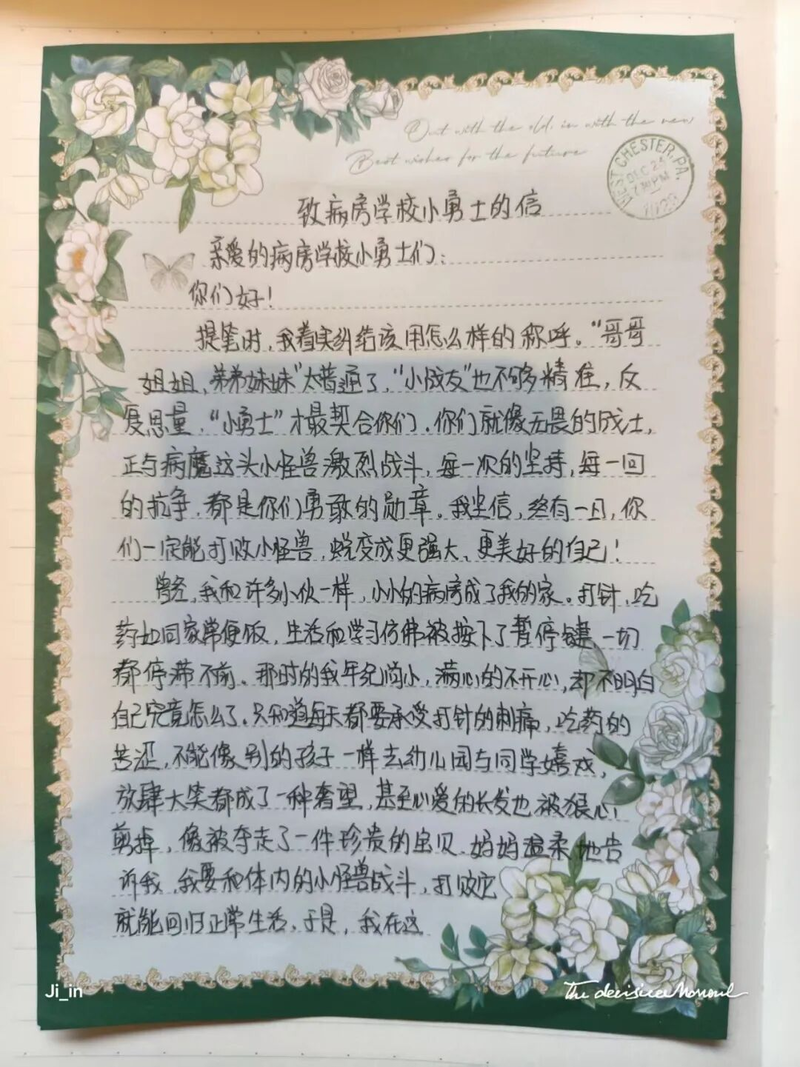 Out with the old, in with the new
Best wishes for the future
WEST CHESTER, PA.
DEC 24
7 PM
致病房学校小勇士的信
亲爱的病房学校小勇士们：
你们好！
提笔时，我着实纠结该用怎么样的称呼。“哥哥
姐姐，弟弟妹妹”太普通了，“小战友”也不够精准，反
复思量，“小勇士”才最契合你们。你们就像无畏的战士，
正与病魔这头小怪兽激烈战斗，每一次的坚持，每一回
的抗争，都是你们勇敢的勋章。我坚信，终有一日，你
们一定能打败小怪兽，蜕变成更强大、更美好的自己！
曾经，我和许多小伙一样，小小的病房成了我的家。打针，吃
药如同家常便饭，生活和学习仿佛被按下了暂停键，一切
都停滞不前。那时的我年纪尚小，满心的不开心，却不明白
自己究竟怎么了。只知道每天都要承受打针的刺痛，吃药的
苦涩，不能像别的孩子一样去幼儿园与同学嬉戏，
放肆大笑都成了一种奢望，甚至心爱的长发也被狠心
剪掉，像被夺走了一件珍贵的宝贝。妈妈温柔地告
诉我，我要和体内的小怪兽战斗，打败它
就能回归正常生活。于是，我在这
Ji_in
The